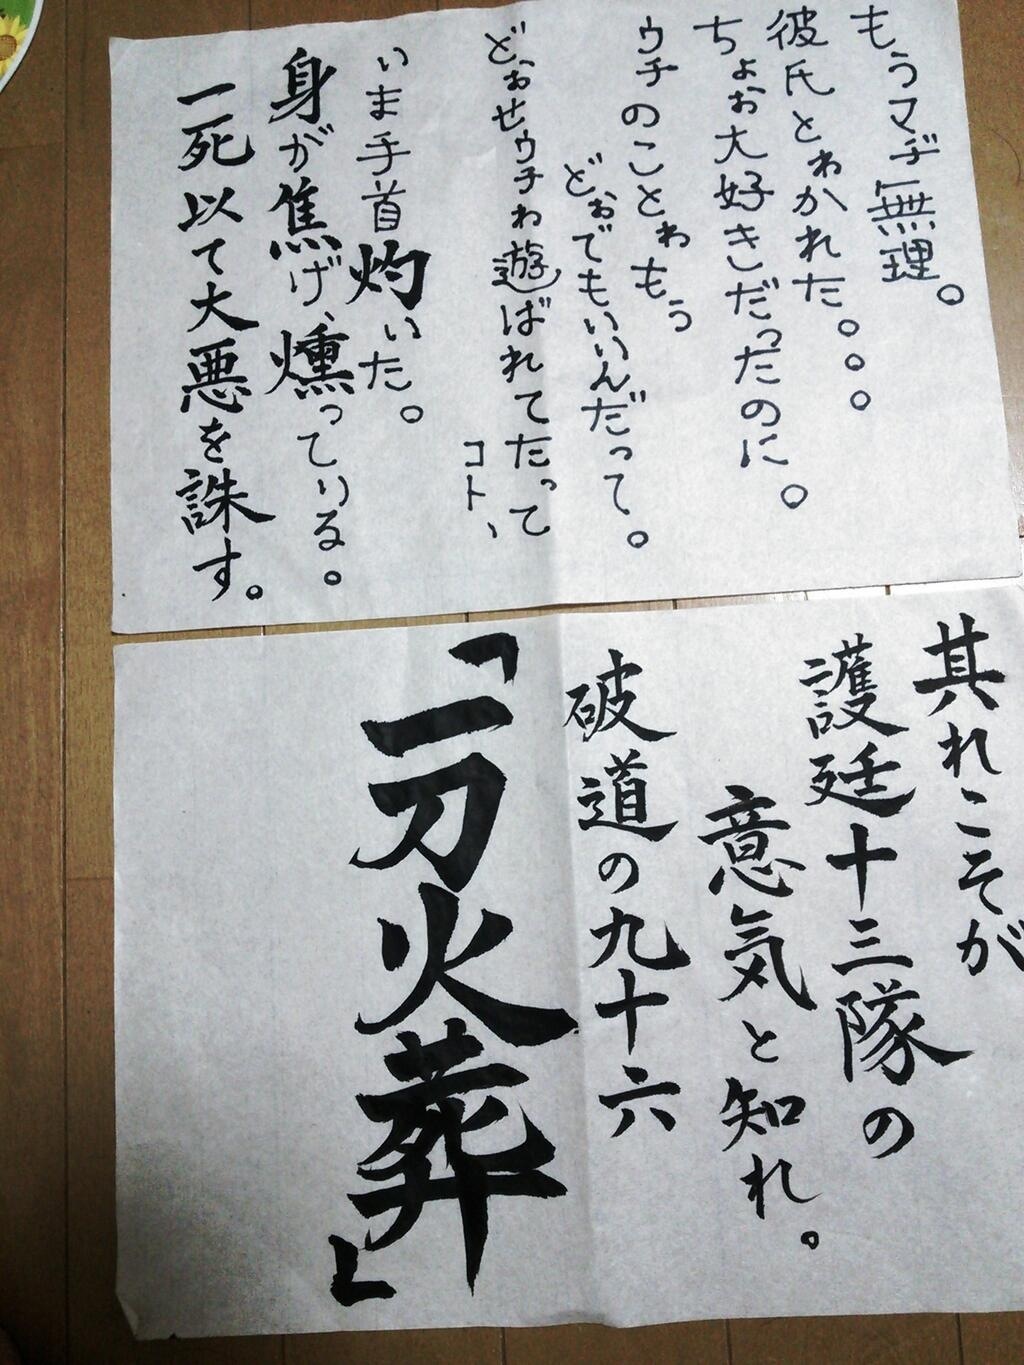 もうマヂ無理。
彼氏とゎかれた。。。
ちょぉ大好きだったのに。
ウチのことゎもう
どぉでもいいんだって。
どぉせウチゎ遊ばれてたって
コト、
いま手首灼いた。
身が焦げ、燻っている。
一死以て大悪を誅す。
其れこそが
護廷十三隊の
意気と知れ。
破道の九十六
「一刀火葬」